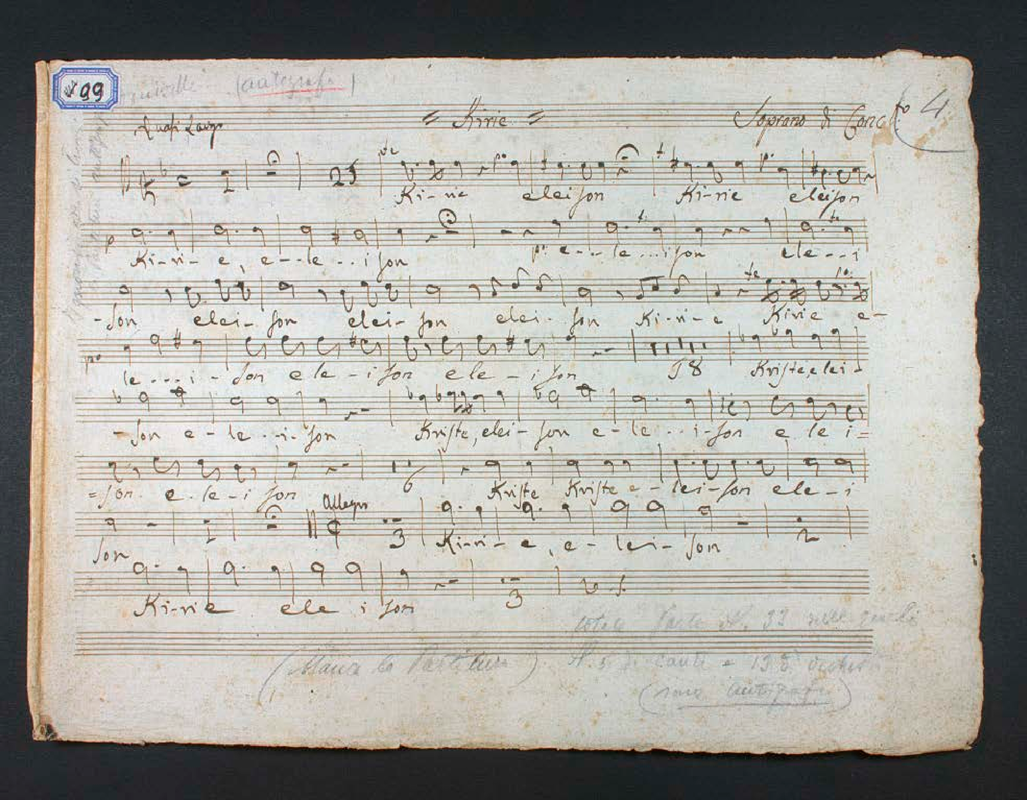 99 (autografi)
Quasi Largo = Kirie = Soprano di Conc.to 4
23 Ki-rie eleison Ki-rie eleison
Ki-ri-e, e-le-..ison e-..le...ison ele-..i
-son elei-son elei-son elei-son Ki-ri-e Kirie e-
le...i-son ele-ison ele-ison 18 Kriste, elei-
-son e-le-..i-son Kriste, elei-son e-le..i-son e le i=
=son. e-le-i son 6 Kriste Kriste e-lei-son ele-i
son Allegro 3 Ki-ri-e, e-lei-son 2
Ki-rie ele i son 3
Parte N. 33
(Manca la Partitura) N. 5 di canto e 13
(sono autografi)